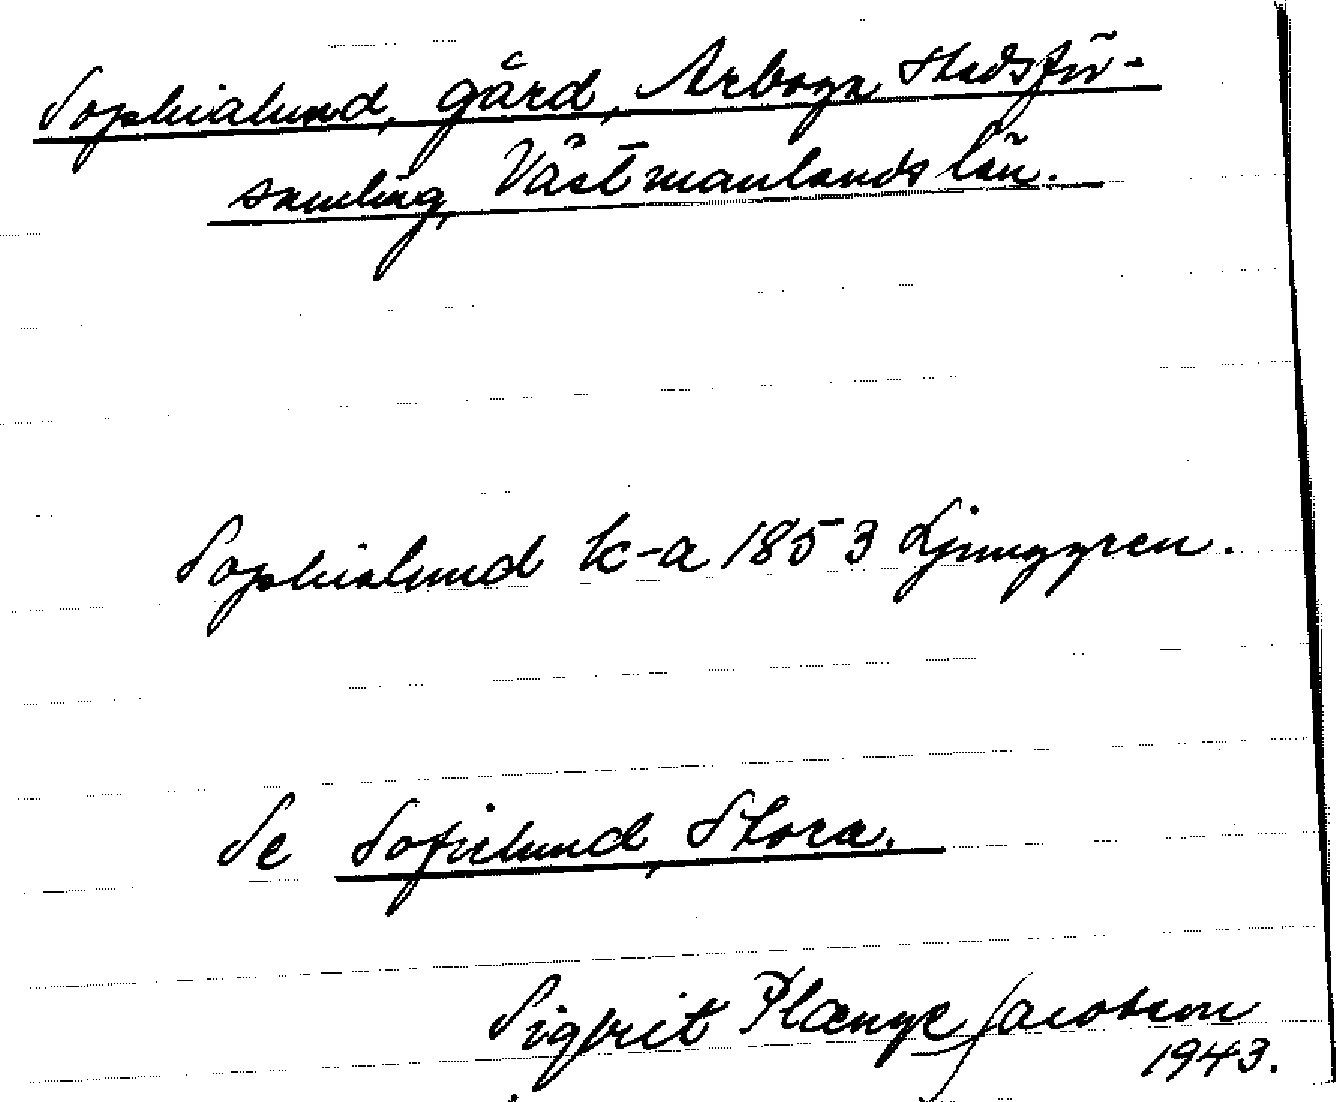 Sophialund, gård, Arboga Stadsför-
samling, Västmanlands län.
Sophialund k-a 1853 Ljunggren.
Se Sofielund, Stora.
Sigbrit Plænge Jacobson
1943.